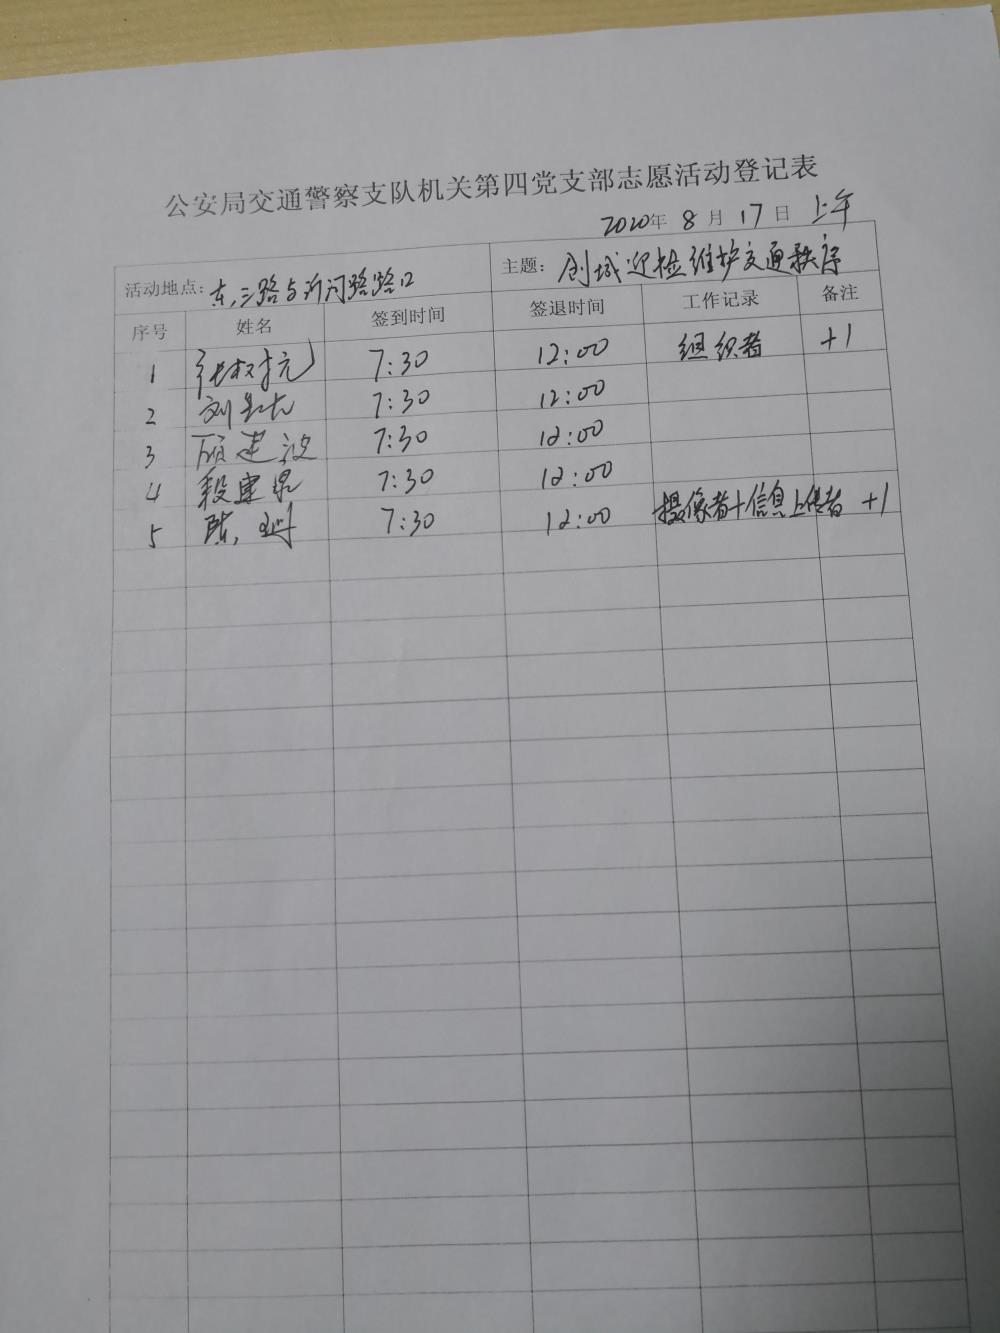 公安局交通警察支队机关第四党支部志愿活动登记表
2020年 8 月 17 日 上午
活动地点: 东三路与沂河路路口 主题: 创城迎检维护交通秩序
序号 姓名 签到时间 签退时间 工作记录 备注
1 7:30 12:00 组织者 +1
2 刘 7:30 12:00
3 顾建波 7:30 12:00
4 段建 7:30 12:00
5 陈 7:30 12:00 摄像者+信息上传者 +1